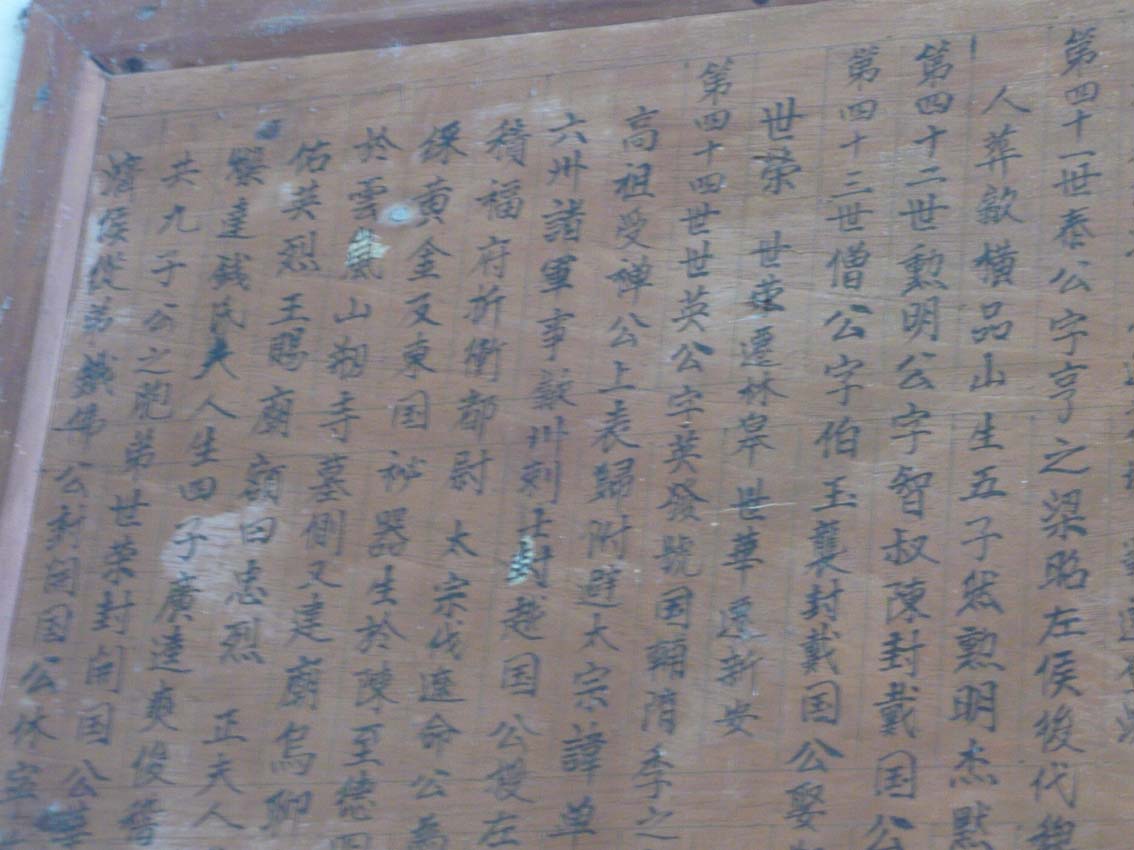 第四十一世泰公字亨之梁昭左侯後代
人葬歙橫品山生五子然勲明杰默
第四十二世勲明公字智叔陳封戴国公
第四十三世僧公字伯玉襲封戴国公娶
世荣 世英遷林皋世華遷新安
第四十四世世英公字英發號国輔隋季之
高祖受禅公上表歸附避太宗諱单
六州諸軍事歙州刺士封越国公授左
積福府折衝都尉 太宗伐遼命公為
綵黄金又東国祕器生於陳至德四
於雲嵐山刱寺墓側又建廟烏聊
佑英烈王賜廟額曰忠烈 正夫人
達錢氏夫人生四子廣達爽俊
共九子公之胞弟世荣封開国公
侯從弟鐵佛公封開国公休